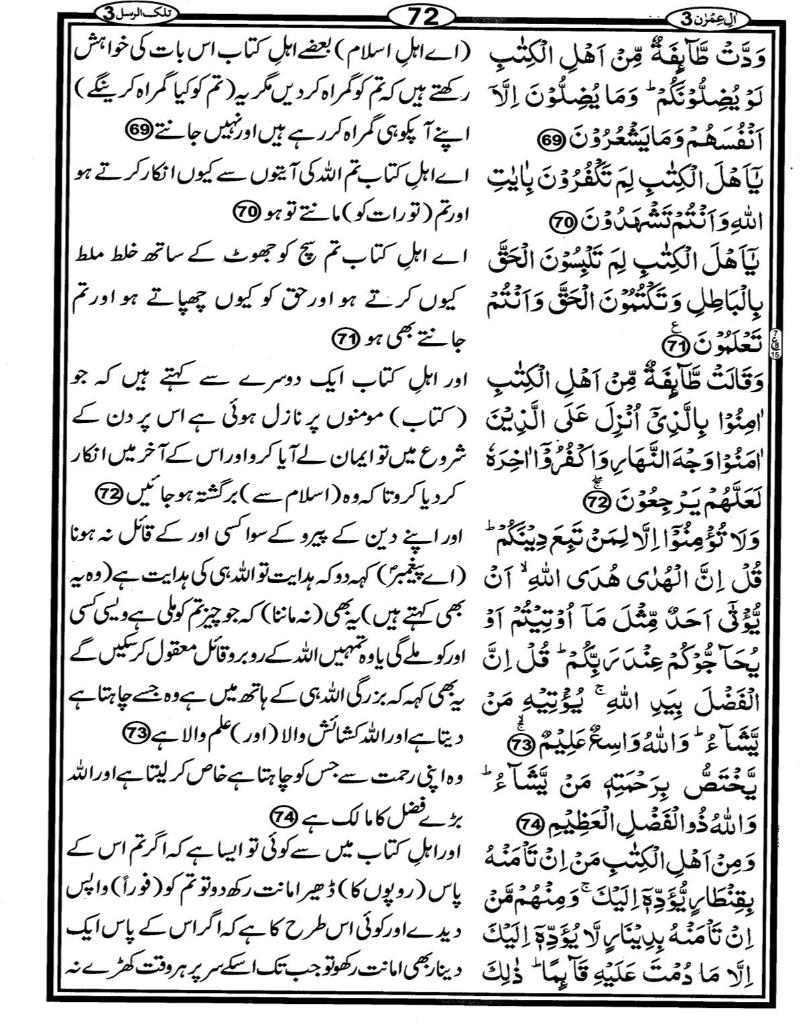 اٰل عِمْرٰن 3
72
تلك الرسل 3
وَدَّتْ طَّآىِٕفَةٌ مِّنْ اَهْلِ الْكِتٰبِ
لَوْ يُضِلُّوْنَكُمْ ؕ وَمَا يُضِلُّوْنَ اِلَّاۤ
اَنْفُسَهُمْ وَمَا يَشْعُرُوْنَ 69
يٰۤاَهْلَ الْكِتٰبِ لِمَ تَكْفُرُوْنَ بِاٰيٰتِ
اللّٰهِ وَاَنْتُمْ تَشْهَدُوْنَ 70
يٰۤاَهْلَ الْكِتٰبِ لِمَ تَلْبِسُوْنَ الْحَقَّ
بِالْبَاطِلِ وَتَكْتُمُوْنَ الْحَقَّ وَاَنْتُمْ
تَعْلَمُوْنَ 71 ع
وَقَالَتْ طَّآىِٕفَةٌ مِّنْ اَهْلِ الْكِتٰبِ
اٰمِنُوْا بِالَّذِيْۤ اُنْزِلَ عَلَى الَّذِيْنَ
اٰمَنُوْا وَجْهَ النَّهَارِ وَاكْفُرُوْۤا اٰخِرَهٗ
لَعَلَّهُمْ يَرْجِعُوْنَ 72
وَلَا تُؤْمِنُوْۤا اِلَّا لِمَنْ تَبِعَ دِيْنَكُمْ ؕ
قُلْ اِنَّ الْهُدٰى هُدَى اللّٰهِ ۙ اَنْ
يُّؤْتٰۤى اَحَدٌ مِّثْلَ مَاۤ اُوْتِيْتُمْ اَوْ
يُحَآجُّوْكُمْ عِنْدَ رَبِّكُمْ ؕ قُلْ اِنَّ
الْفَضْلَ بِيَدِ اللّٰهِ ۚ يُؤْتِيْهِ مَنْ
يَّشَآءُ ؕ وَاللّٰهُ وَاسِعٌ عَلِيْمٌ 73
يَّخْتَصُّ بِرَحْمَتِهٖ مَنْ يَّشَآءُ ؕ
وَاللّٰهُ ذُو الْفَضْلِ الْعَظِيْمِ 74
وَمِنْ اَهْلِ الْكِتٰبِ مَنْ اِنْ تَاْمَنْهُ
بِقِنْطَارٍ يُّؤَدِّهٖۤ اِلَيْكَ ۚ وَمِنْهُمْ مَّنْ
اِنْ تَاْمَنْهُ بِدِيْنَارٍ لَّا يُؤَدِّهٖۤ اِلَيْكَ
اِلَّا مَا دُمْتَ عَلَيْهِ قَآىِٕمًا ؕ ذٰلِكَ
(اے اہلِ اسلام) بعضے اہلِ کتاب اس بات کی خواہش
رکھتے ہیں کہ تم کو گمراہ کردیں مگر یہ (تم کو کیا گمراہ کرینگے)
اپنے آپکو ہی گمراہ کررہے ہیں اور نہیں جانتے 69
اے اہلِ کتاب تم اللہ کی آیتوں سے کیوں انکار کرتے ہو
اور تم (تورات کو) مانتے تو ہو 70
اے اہلِ کتاب تم سچ کو جھوٹ کے ساتھ خلط ملط
کیوں کرتے ہو اور حق کو کیوں چھپاتے ہو اور تم
جانتے بھی ہو 71
اور اہلِ کتاب ایک دوسرے سے کہتے ہیں کہ جو
(کتاب) مومنوں پر نازل ہوئی ہے اس پر دن کے
شروع میں تو ایمان لے آیا کرو اور اس کے آخر میں انکار
کردیا کرو تاکہ وہ (اسلام سے) برگشتہ ہوجائیں 72
اور اپنے دین کے پیرو کے سوا کسی اور کے قائل نہ ہونا
(اے پیغمبرؐ) کہدو کہ ہدایت تو اللہ ہی کی ہدایت ہے (وہ یہ
بھی کہتے ہیں) یہ بھی (نہ ماننا) کہ جو چیز تم کو ملی ہے ویسی کسی
اور کو ملے گی یا وہ تمہیں اللہ کے روبرو قائل معقول کرسکیں گے
یہ بھی کہہ کہ بزرگی اللہ ہی کے ہاتھ میں ہے وہ جسے چاہتا ہے
دیتا ہے اور اللہ کشائش والا (اور) علم والا ہے 73
وہ اپنی رحمت سے جس کو چاہتا ہے خاص کرلیتا ہے اور اللہ
بڑے فضل کا مالک ہے 74
اور اہلِ کتاب میں سے کوئی تو ایسا ہے کہ اگر تم اس کے
پاس (روپوں کا) ڈھیر امانت رکھ دو تو تم کو (فوراً) واپس
دیدے اور کوئی اس طرح کا ہے کہ اگر اس کے پاس ایک
دینار بھی امانت رکھو تو جب تک اسکے سر پر ہر وقت کھڑے نہ
7
ع
8
15